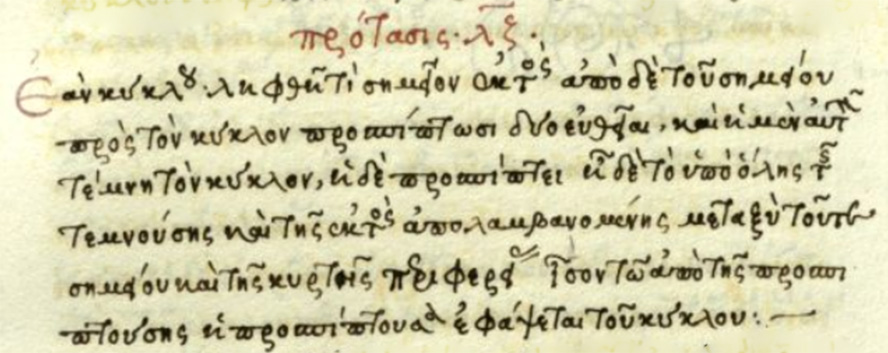 πρότασις λζ.
Ἐὰν κύκλου ληφθῆ τὶ σημεῖον ἐκτὸς ἀπὸ δὲ τοῦ σημείου
πρὸς τὸν κύκλον προσπίπτωσι δύο εὐθεῖαι, καὶ ἡ μὲν αὐτῶν
τέμνη τὸν κύκλον, ἡ δὲ προσπίπτει ἦ δὲ τὸ ὑπὸ ὅλης τῆς
τεμνούσης καὶ τῆς ἐκτὸς ἀπολαμβανομένης μεταξὺ τοῦ τε
σημείου καὶ τῆς κυρτῆς περιφερείας ἶσον τῶ ἀπὸ τῆς προσπι
πτούσης ἡ προσπίπτουσα ἐφάψεται τοῦ κύκλου: